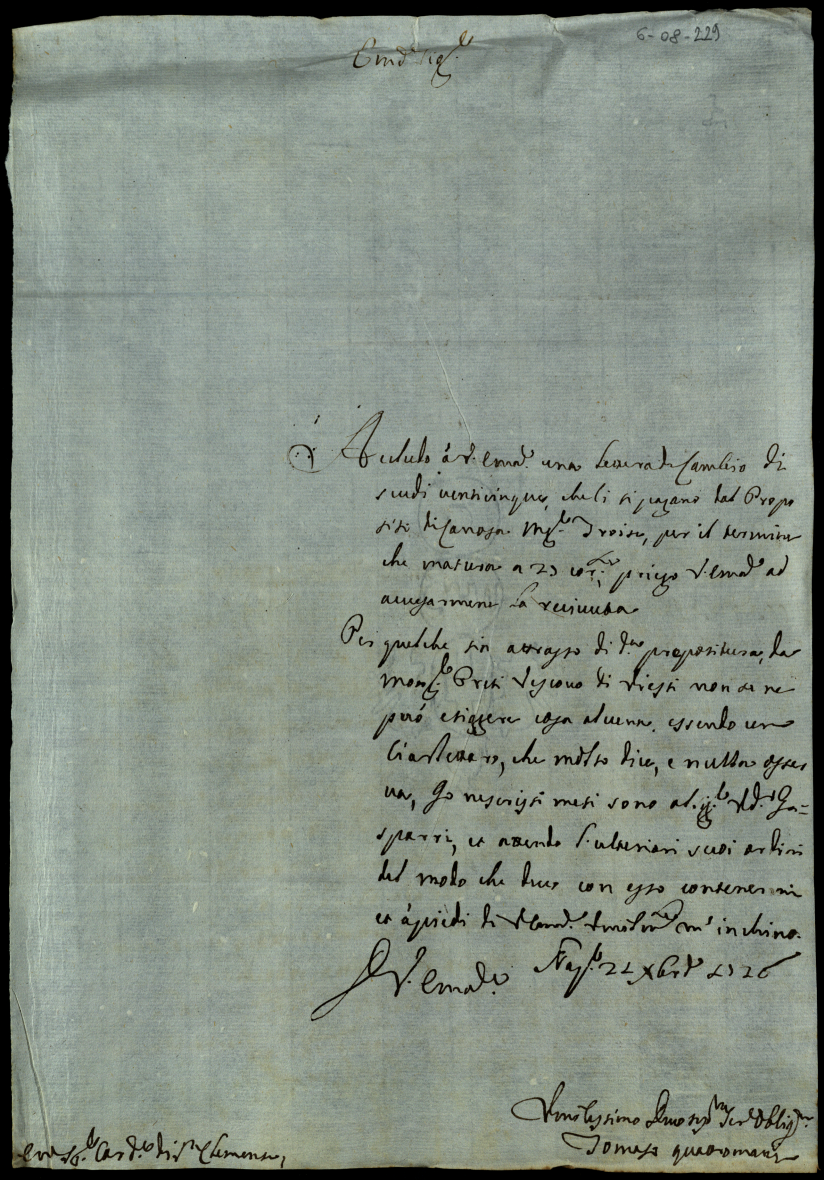 6-08-229
Em.o Sig.re
Acludo à V. Em.a una lettera di Cambio di
scudi venticinque, che li si pagano dal Propo
sito di Canosa Troisi, per il termine
che matura a 23 cor.te, priego V. Em.a ad
accusarmene la ricevuta
Per quel che sia attrasso di d.ta propositura, da
Mons.r Vescovo di Viesti non se ne
può esiggere cosa alcuna, essendo un
che molto dice, e nulla osser
va, Io ne scrissi mesi sono al Sig.r Ga=
sparri, et attendo l'ulteriori suoi ordini
del modo che devo con esso contenermi
et à piedi di V. Em.a m'inchino.
D. V. Em.a Nap.li 22 Xbre 1726
Umilissimo Ser.e Oblig.mo
Tomaso quattromani
Em.o Sig.r Card.le di S. Clemente